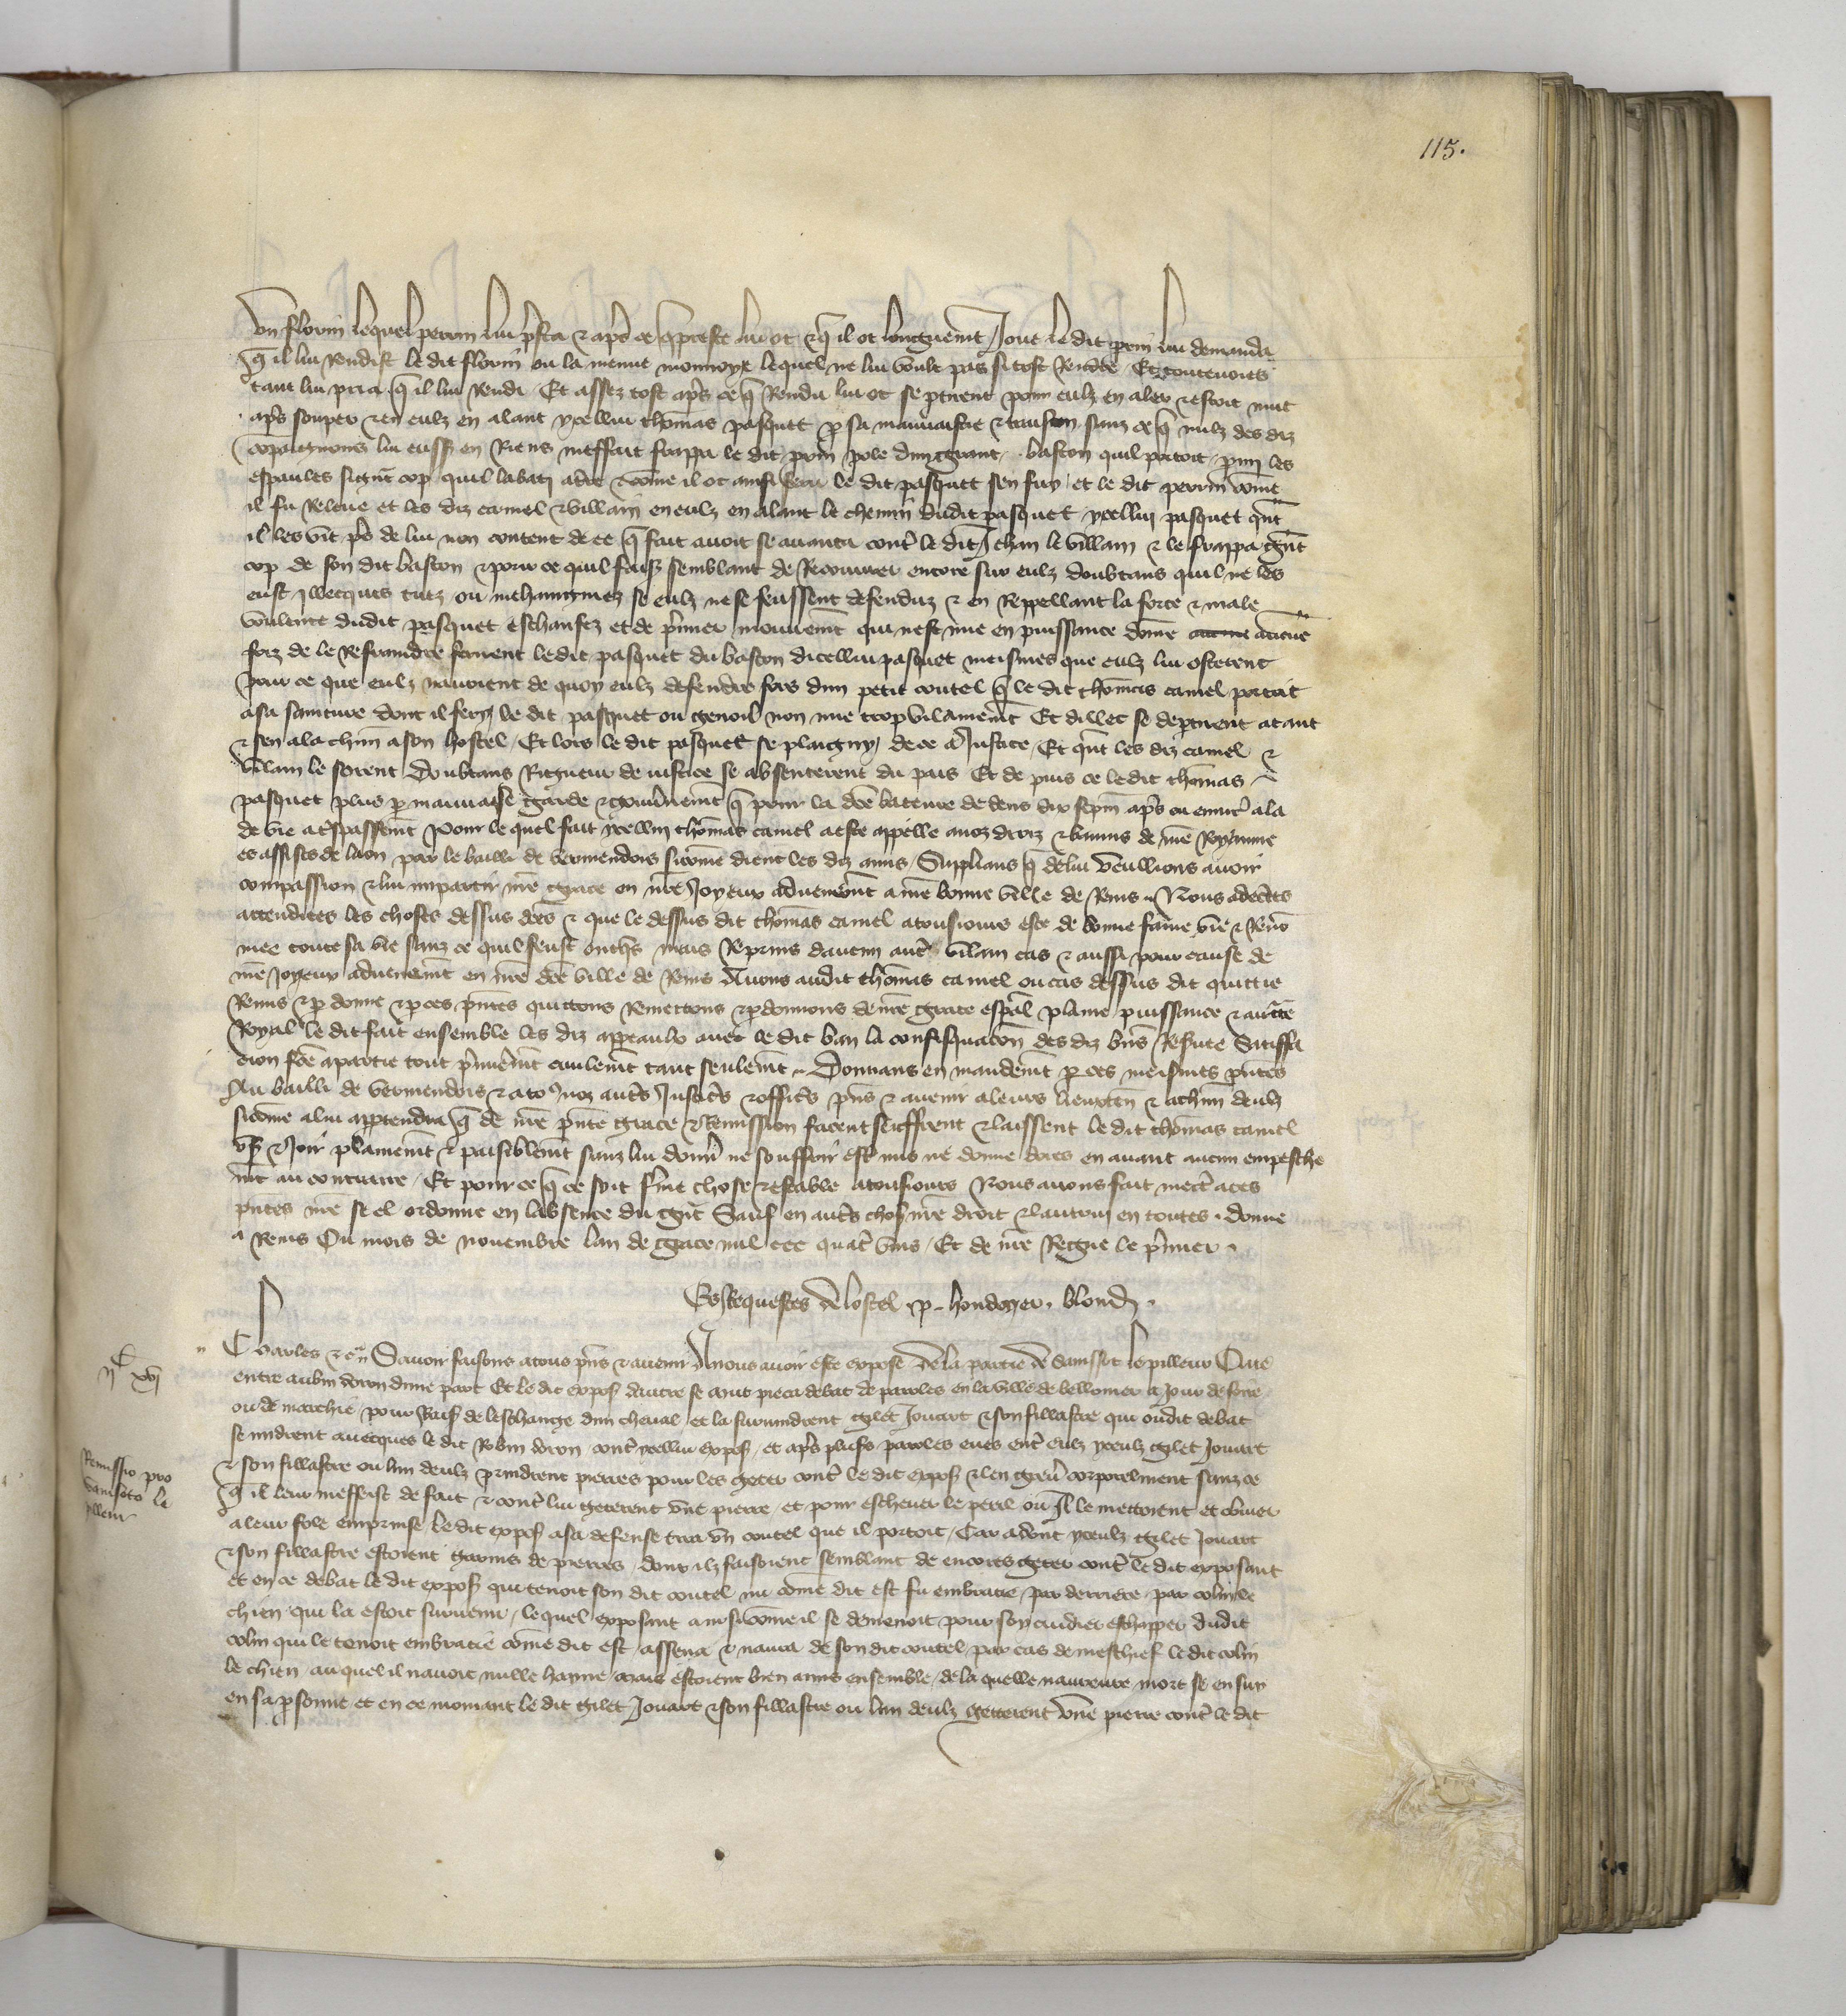 115.
Un florin lequel perrin lui presta et apres ce que preste lui ot et que il ot longuement Joue le dit perrin lui demanda
que il lui Rendist le dit florin ou la menue monnoye lequel ne lui voult pas si tost Rendre Et toutevoies
tant lui pria que il lui Rendi Et assez tost apres ce que Rendu lui ot se partirent pour eulz en aler et estoit nuit
apres souper et en eulz en alant ycellui thomas pasquet par sa mauvaistie et traison sanz ce que nulz des diz
compaignons lui eussent en Riens meffait frappa le dit perrin pole dun grant baston quil portoit parmi les
espaules si grant cop quil labati a terre et comme il ot ainsi feru le dit pasquet sen fuy et le dit perrin comme
il fu Releve et les diz camel et villain en eulz en alant le chemin dudit pasquet ycellui pasquet quant
il les vit pres de lui non content de ce que fait avoit se avanca contre le dit Jehan le villain et le frappa grant
cop de son dit baston et pour ce quil faisoit semblant de Recouvrer encore sur eulz doubtans quil ne les
eust illecques tuez ou mehaingniez se eulz ne se feussent defenduz et en Reppellant la force et male
voulente dudit pasquet eschaufez et de premier mouvement qui nest mie en puissance domme aucune
foiz de le Refraindre ferirent le dit pasquet du baston dicellui pasquet meismes que eulz lui osterent
pour ce que eulz navoient de quoy eulz defendre fors dun petit coutel que le dit thomas camel portoit
a sa sainture dont il feri le dit pasquet ou genoil non mie trop vilainement Et dillec se departirent atant
et sen ala chascun a son hostel Et lors le dit pasquet se plaigny de ce a Justice Et quant les diz camel et
villain le sorent doubtans Rigueur de iustice se absenterent du pais Et de puis ce le dit thomas
pasquet plus par mauvaise garde et gouvernement que pour la dicte bateure dedens dix sepmaines apres ou environ ala
de vie a trespassement Pour le quel fait ycellui thomas camel a este appelle a noz droiz et banniz de nostre Royaume
es assises de laon par le bailli de vermendois si comme dient les diz amis Supplians que de lui veullions avoir
compassion et lui impartir nostre grace en nostre Joyeux advenement a nostre bonne ville de Reins Nous adecertes
attendues les choses dessus dictes et que le dessus dit thomas camel a tousjours este de bonne fame vie et Renom
mee toute sa vie sanz ce quil feust onques mais Reprins daucun autre vilain cas et aussi pour cause de
nostre Joyeux advenement en nostre dicte ville de Reins Avons audit thomas camel ou cas dessus dit quittie
Remis et pardonne et par ces presentes quittons Remettons et pardonnons de nostre grace especial plaine puissance et auctorite
Royal le dit fait ensemble les diz appeaulx avec le dit ban la confisquacion des diz biens Restitue Satisfa
cion faicte a partie tout premierement civilement tant seulement Donnans en mandement par ces meismes presentes
Au bailli de vermendois et a touz noz autres Justiciers et officiers presens et avenir a leurs lieuxtenans et a chascun deulz
si comme a lui appartendra que de nostre presente grace et Remission facent seuffrent et laissent le dit thomas camel
user et Joir plainement et paisiblement sanz lui donner ne souffrir estre mis ne donne dores en avant aucun empesche
ment au contraire Et pour ce que ce soit ferme chose et estable a tousjours Nous avons fait mectre a ces
presentes nostre seel ordonne en labsence du grant Sauf en autres choses nostre droit et lautrui en toutes. Donne
a Reins Ou mois de novembre lan de grace mil ccc quatre vins Et de nostre Regne le premier.
Es Requestes de lostel. p. hondoyer. blond.
C xvi
Charles etc. Savoir faisons a touz presens et avenir A nous avoir este expose de la partie de Sansset le pilleur Que
entre aubin doron dune part Et le dit exposant dautre se mut pieca debat de paroles en la ville de bellomer a Jour de foire
ou de marchie pour Raison de leschange dun cheval et la survindrent gilet Jouart et son fillastre qui oudit debat
se mirdrent avecques le dit Robin doron contre ycellui exposant et apres pluseurs paroles eues entre eulz yceulz gilet Jouart
et son fillastre ou lun deulz prindrent pierres pour les geter contre le dit exposant et len grever corporelment sanz ce
que il leur meffeist de fait et contre lui geterent une pierre et pour eschever le peril ou Il le mettoient et obvier
a leur fole emprinse le dit exposant a sa defense tira un coutel que il portoit Car adont yceulz gilet Jouart
et son fillastre estoient garnis de pierres dont ilz faisoient semblant de encores geter contre le dit exposant
et en ce debat le dit exposant qui tenoit son dit coutel nu comme dit est fu embracie par derriere par colin le
chien qui la estoit survenu lequel exposant ainsi comme il se demenoit pour soy cuidier eschapper dudit
colin qui le tenoit embracie comme dit est assena et navra de son dit coutel par cas de meschief le dit colin
le chien au quel il navoit nulle hayne mais estoient bien amis ensemble de la quelle navreure mort se ensuy
en sa personne et en ce momant le dit gilet Jouart et son fillastre ou lun deulz getterent une pierre contre le dit
Remissio pro
Sansseto le
pilleur